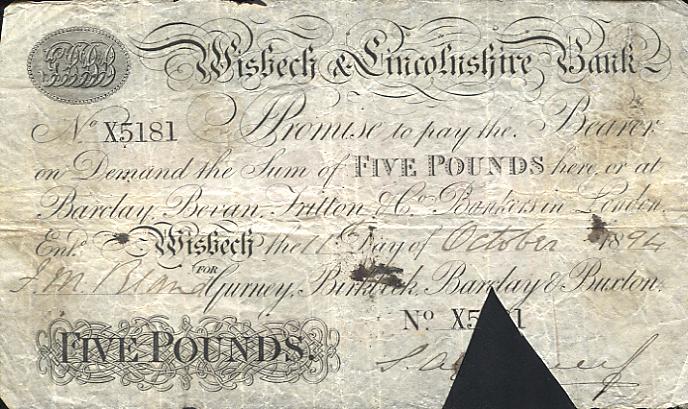 Wisbech & Lincolnshire Bank
No X5181 I Promise to pay the Bearer
on Demand the Sum of FIVE POUNDS here, or at
Barclay, Bevan, Tritton & Co. Bankers in London.
Entd. Wisbech the 11th Day of October 1894
FOR
J. M. Bland Gurney, Birkbeck, Barclay & Buxton.
No X5 1
FIVE POUNDS.